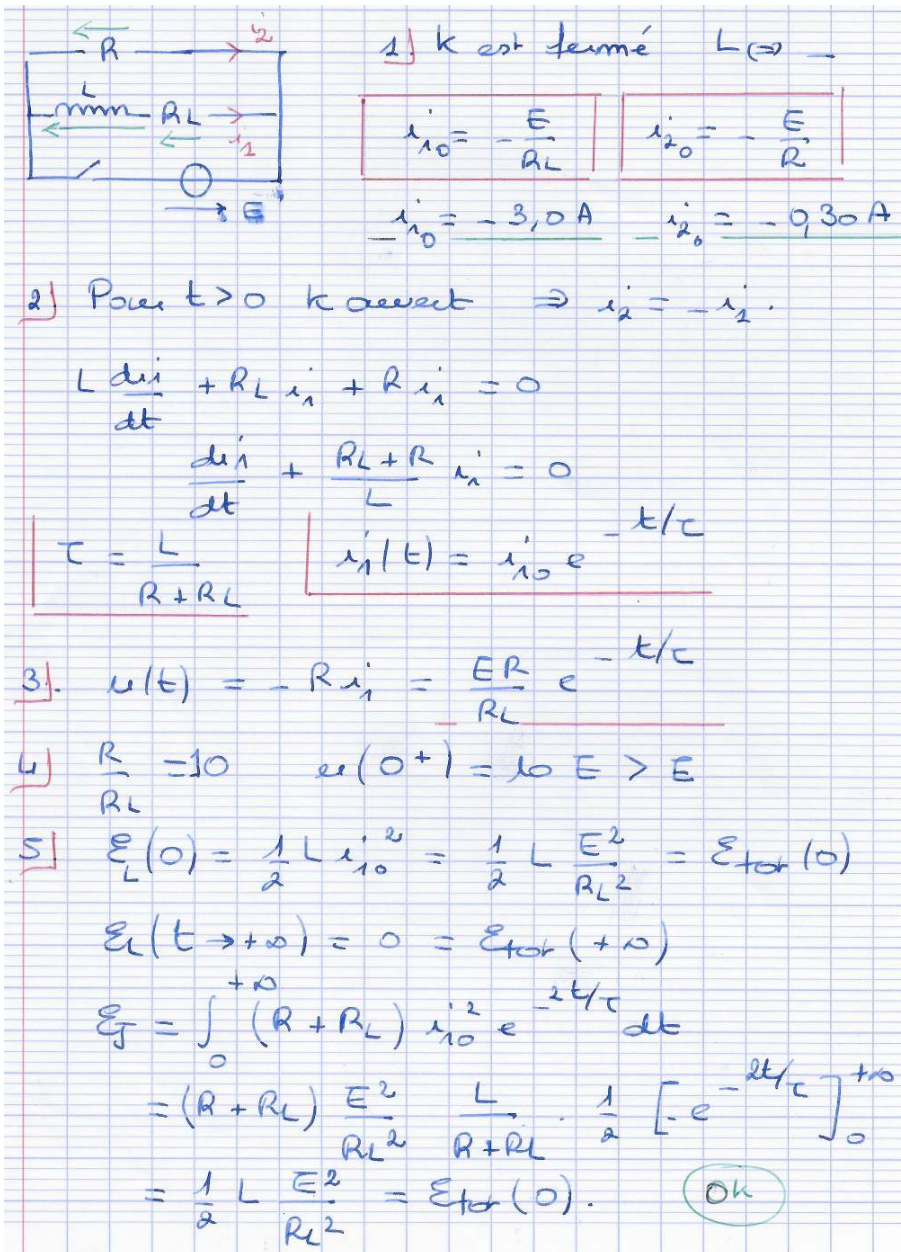 R i₂
L R_L i₁
E
1) K est fermé L ⇔ —
i₁₀ = - E/R_L i₂₀ = - E/R
i₁₀ = - 3,0 A i₂₀ = - 0,30 A
2) Pour t > 0 K ouvert ⇒ i₂ = - i₁.
L di₁/dt + R_L i₁ + R i₁ = 0
di₁/dt + (R_L + R)/L i₁ = 0
τ = L/(R + R_L) i₁(t) = i₁₀ e^(-t/τ)
3). u(t) = - R i₁ = ER/R_L e^(-t/τ)
4) R/R_L = 10 u(0⁺) = 10 E > E
5) ℰ_L(0) = 1/2 L i₁₀² = 1/2 L E²/R_L² = ℰ_tot(0)
ℰ_L(t → +∞) = 0 = ℰ_tot(+∞)
ℰ_J = ∫₀^(+∞) (R + R_L) i₁₀² e^(-2t/τ) dt
= (R + R_L) E²/R_L² L/(R + R_L) · 1/2 [- e^(-2t/τ)]₀^(+∞)
= 1/2 L E²/R_L² = ℰ_tot(0). OK